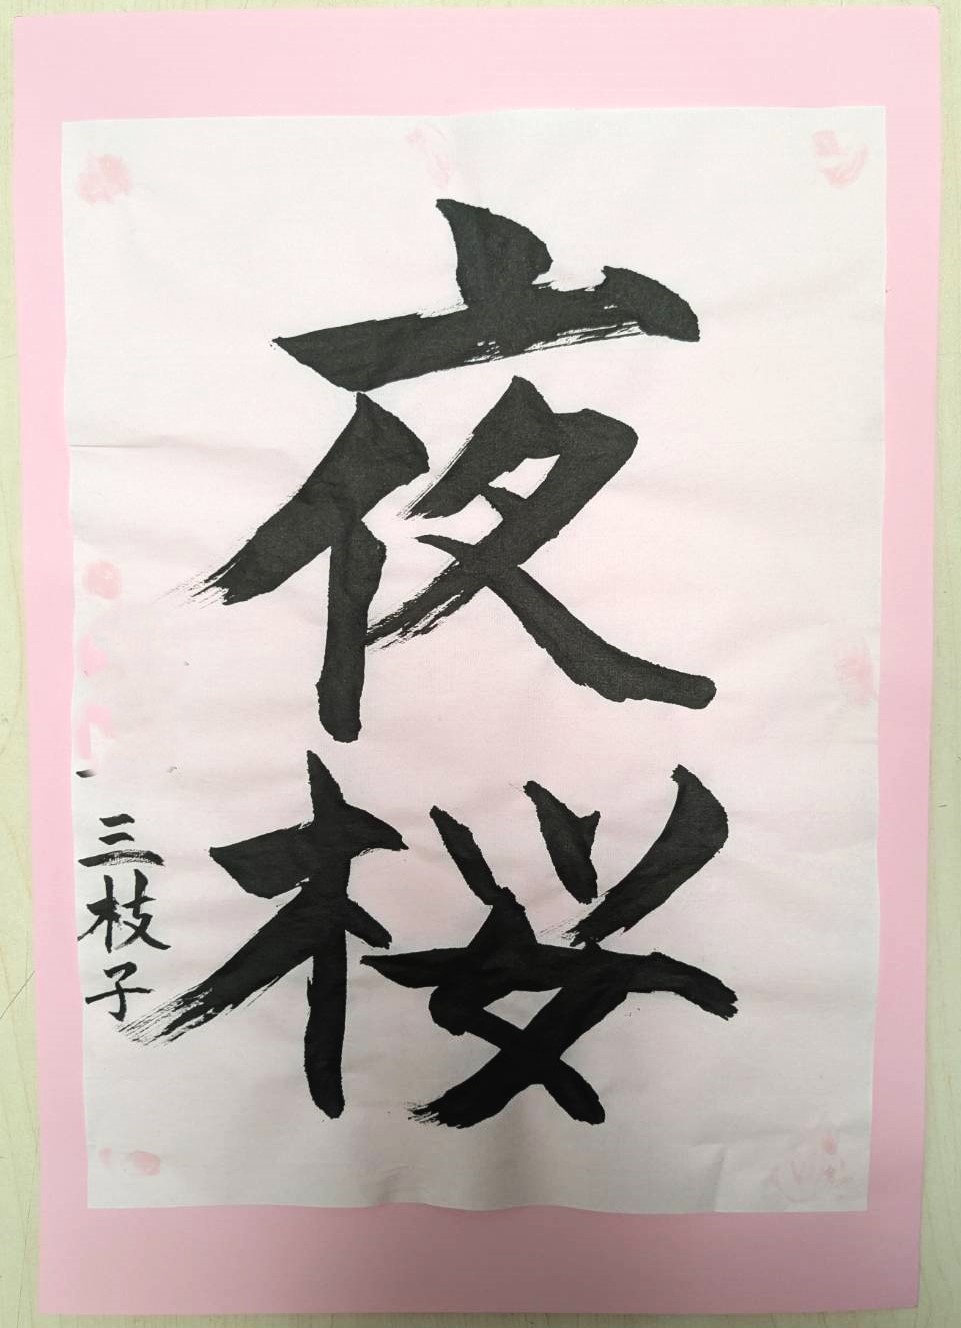 夜桜
三枝子